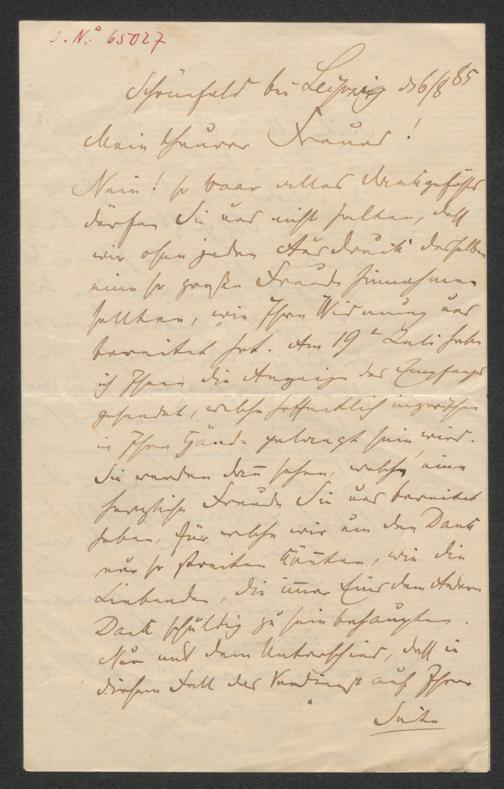 J. N.º 65027
Schönefeld bei Leipzig d 6/8 85
Mein theurer Freund!
Nein! so baar alles Dankgefühls
dürfen Sie uns nicht halten, daß
wir ohne jeden Ausdruck desselben
eine so große Freude hinnehmen
sollten, wie Ihre Widmung uns
bereitet hat. Am 19t Juli habe
ich Ihnen die Anzeige des Empfangs
gesendet, welche hoffentlich inzwischen
in Ihre Hände gelangt sein wird.
Sie werden dañ sehen, welche eine
herzliche Freude Sie uns bereitet
haben, für welche wir um den Dank
nur so streiten köñten, wie die
Liebenden, die im̄er Eins dem Andern
Dank schuldig zu sein behaupten.
Nur mit dem Unterschied, daß in
diesem Fall das Verdienst auf Ihrer
Seite